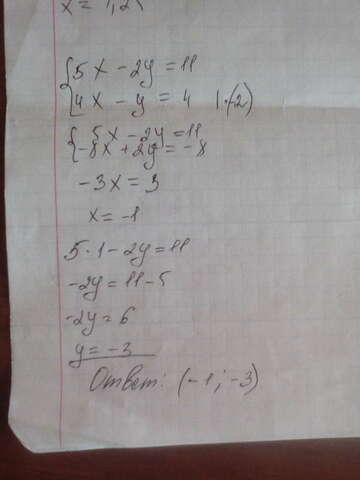 x = 1,2
{5x - 2y = 11
{4x - y = 4 | · (-2)
{5x - 2y = 11
{-8x + 2y = -8
-3x = 3
x = -1
5 · 1 - 2y = 11
-2y = 11 - 5
-2y = 6
y = -3
Ответ: (-1; -3)